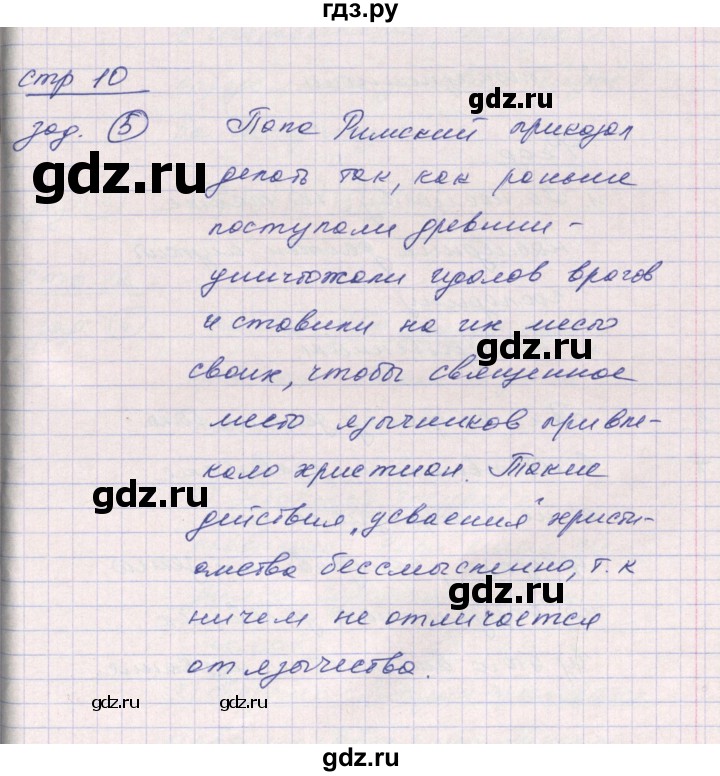 гдз.ру
стр 10
зад. 5 Папа Римский приказал
делать так, как раньше
gdz.ru
поступали древние -
уничтожали идолов врагов
и ставили на их место
gdz.ru
своих, чтобы священное
место язычников привле-
кало христиан. Такие
gdz.ru
действия "усваения" христи-
анства бессмысленно, т.к
gdz.ru
ничем не отличается
от язычества.
gdz.ru
gdz.ru
gdz.ru